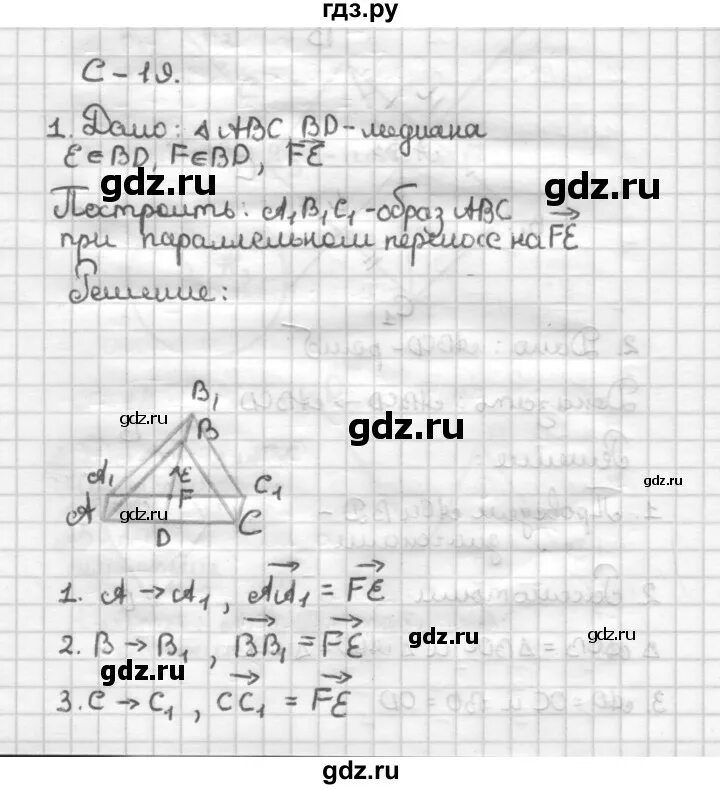 гдз.ру
С-19.
1. Дано: △ABC, BD-медиана
E∈BD, F∈BD, FE
gdz.ru
gdz.ru
Построить: A₁B₁C₁-образ ABC
при параллельном переносе на FE
Решение:
B₁
gdz.ru
B
gdz.ru
A₁
E
F
C₁
gdz.ru
A
gdz.ru
D
C
1. A → A₁, AA₁ = FE
2. B → B₁, BB₁ = FE
gdz.ru
gdz.ru
3. C → C₁, CC₁ = FE
gdz.ru
gdz.ru